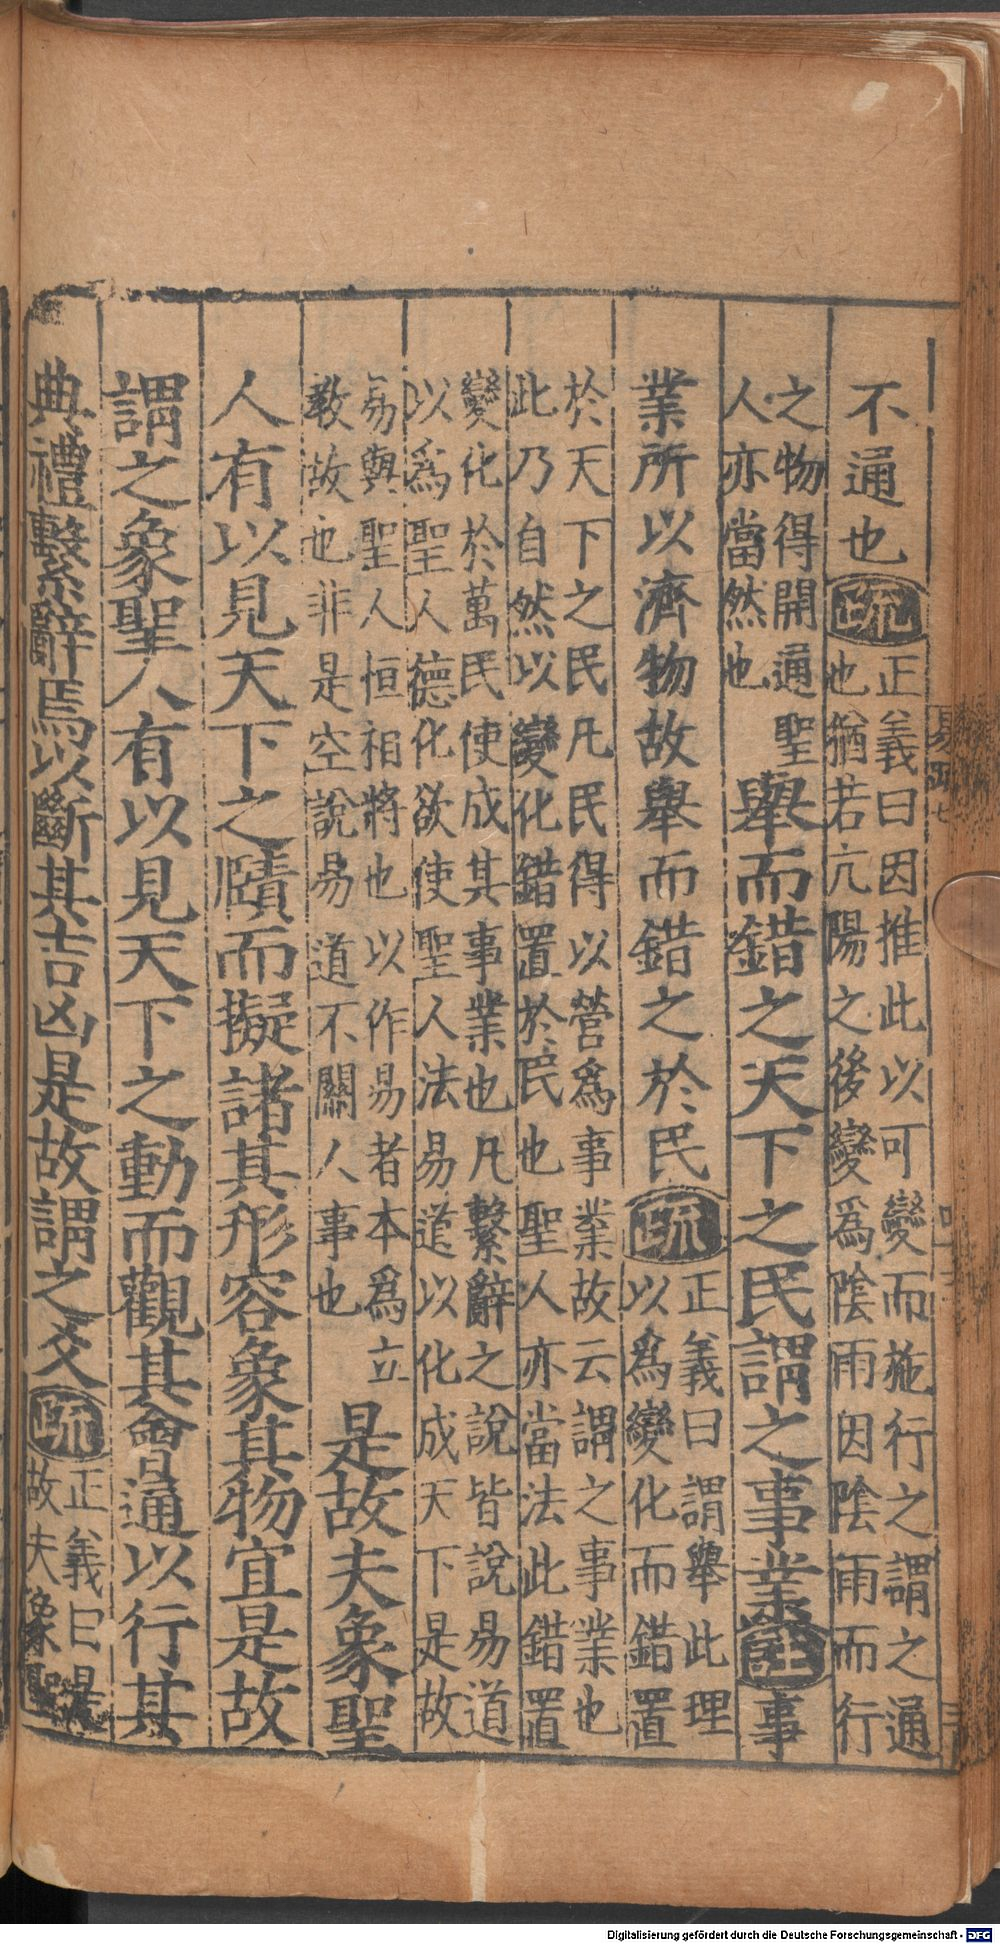 不通也疏正義曰因推此以可變而施行之謂之通
也猶若亢陽之後變爲陰雨因陰雨而行
之物得開通聖
人亦當然也
舉而錯之天下之民謂之事業註事
業所以濟物故舉而錯之於民疏正義曰謂舉此理
以爲變化而錯置
於天下之民凡民得以營爲事業故云謂之事業也
此乃自然以變化錯置於民也聖人亦當法此錯置
變化於萬民使成其事業也凡繫辭之說皆說易道
以爲聖人德化欲使聖人法易道以化成天下是故
易與聖人恒相將也以作易者本爲立
敎故也非是空說易道不關人事也
是故夫象聖
人有以見天下之賾而擬諸其形容象其物宜是故
謂之象聖人有以見天下之動而觀其會通以行其
典禮繫辭焉以斷其吉凶是故謂之爻疏正義曰是
故夫象聖
易疏七
Digitalisierung gefördert durch die Deutsche Forschungsgemeinschaft - DFG